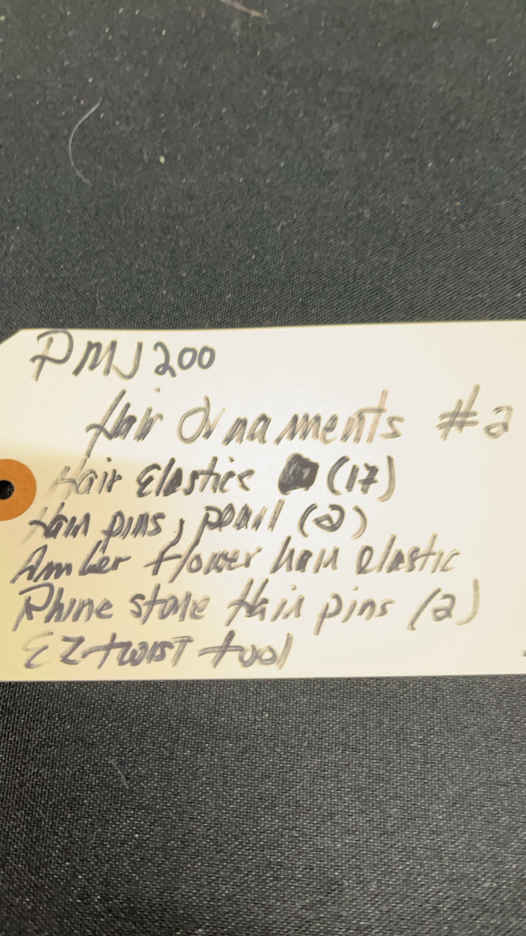 PMJ200
Hair Ornaments #2
Hair Elastics (17)
Hair pins, pearl (2)
Amber flower hair elastic
Rhine stone Hair pins (2)
EZ twist tool